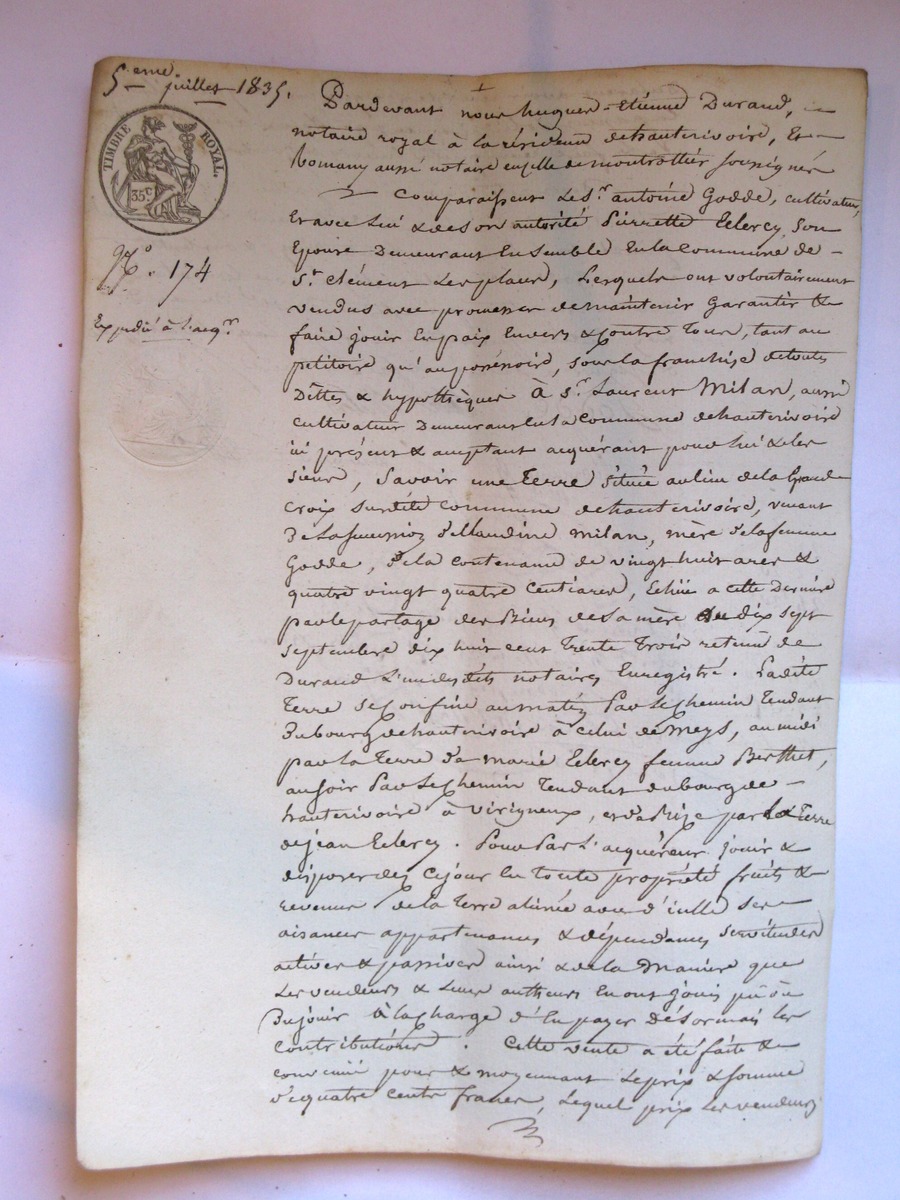 5eme juillet 1835.
TIMBRE ROYAL.
35c
174
Expédié à l'acqr
Pardevant nous hugues-Etienne Durand,
notaire royal à la résidence de hauterivoire, Et
Romany aussi notaire en ville de montrottier soussignés
Comparaissent Le Sr. antoine Godde, cultivateur,
Et avec Lui & de son autorité Pierrette Eclercy, Son
Epouse Demeurant Ensemble En la commune de
St. Clément Les places, Lesquels ont volontairement
vendus avec promesse de maintenir Garantir &
faire jouir En paix Envers & Contre Tous, tant au
pétitoire qu'au possessoire, sous la franchise de toutes
Dêttes & hypothèques à Sr. Laurent Milan, aussi
cultivateur Demeurant En la commune de hauterivoire
ici présent & acceptant acquérant pour lui & les
siens, Savoir une Terre Située au lieu de la Grande
Croix Sur dite commune de hauterivoire, venant
De la succession de Claudine milan, mère de la femme
Godde, De la contenance de vingt huit ares &
quatre vingt quatre Centiares, Echüe a cette Dernière
par le partage des Biens de Sa mère du dix sept
septembre dix huit cent Trente Trois retenu de
Durand L'un des dits notaires Enregistré. Ladite
Terre se Confine au matin Par le chemin Tendant
Du bourg de hauterivoire à celui de meys, au midi
par la Terre de marie Eclercy femme Berthet,
au Soir Par le chemin Tendant du bourg de
hauterivoire à virigneux, et de Bize par la Terre
de jean Eclercy. Pour Par L'acquéreur jouir &
disposer dès Ce jour En toute propriété fruits &
revenus de la Terre aliénée avec d'icelle ses
aisances appartenances & dépendances Servitudes
actives & passives ainsi & de la manière que
Les vendeurs & Leurs autheurs En ont jouis pû dû
En jouir à la charge d'En payer Désormais les
Contributions. Cette vente a été faite &
convenüe pour & moyennant Le prix & somme
de quatre cents francs, Lequel prix Les vendeurs